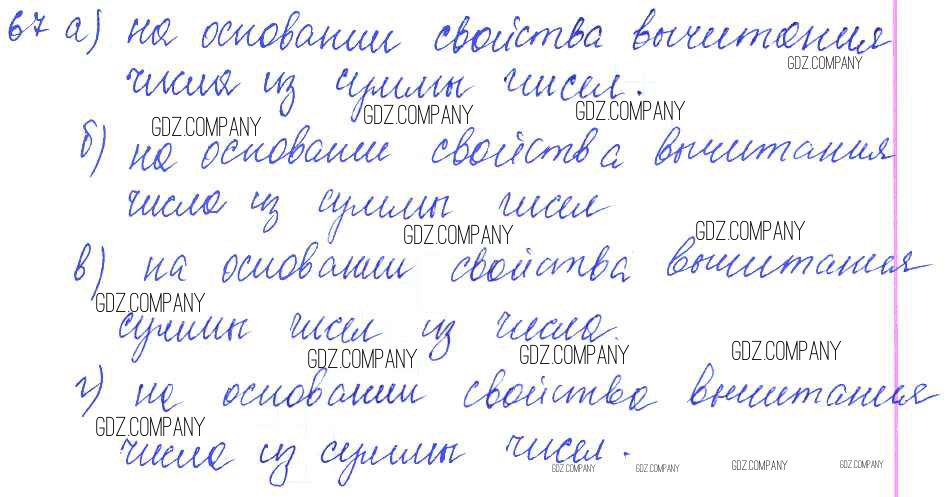 67 а) на основании свойства вычитания
GDZ.COMPANY
числа из суммы чисел.
GDZ.COMPANY GDZ.COMPANY GDZ.COMPANY
б) на основании свойства вычитания
числа из суммы чисел
GDZ.COMPANY GDZ.COMPANY
в) на основании свойства вычитания
GDZ.COMPANY
суммы чисел из числа.
GDZ.COMPANY GDZ.COMPANY GDZ.COMPANY
г) на основании свойства вычитания
GDZ.COMPANY
числа из суммы чисел.
GDZ.COMPANY GDZ.COMPANY GDZ.COMPANY GDZ.COMPANY